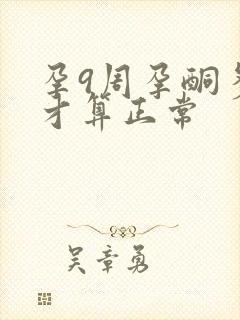 孕9周孕酮多
才算正常
吴章勇